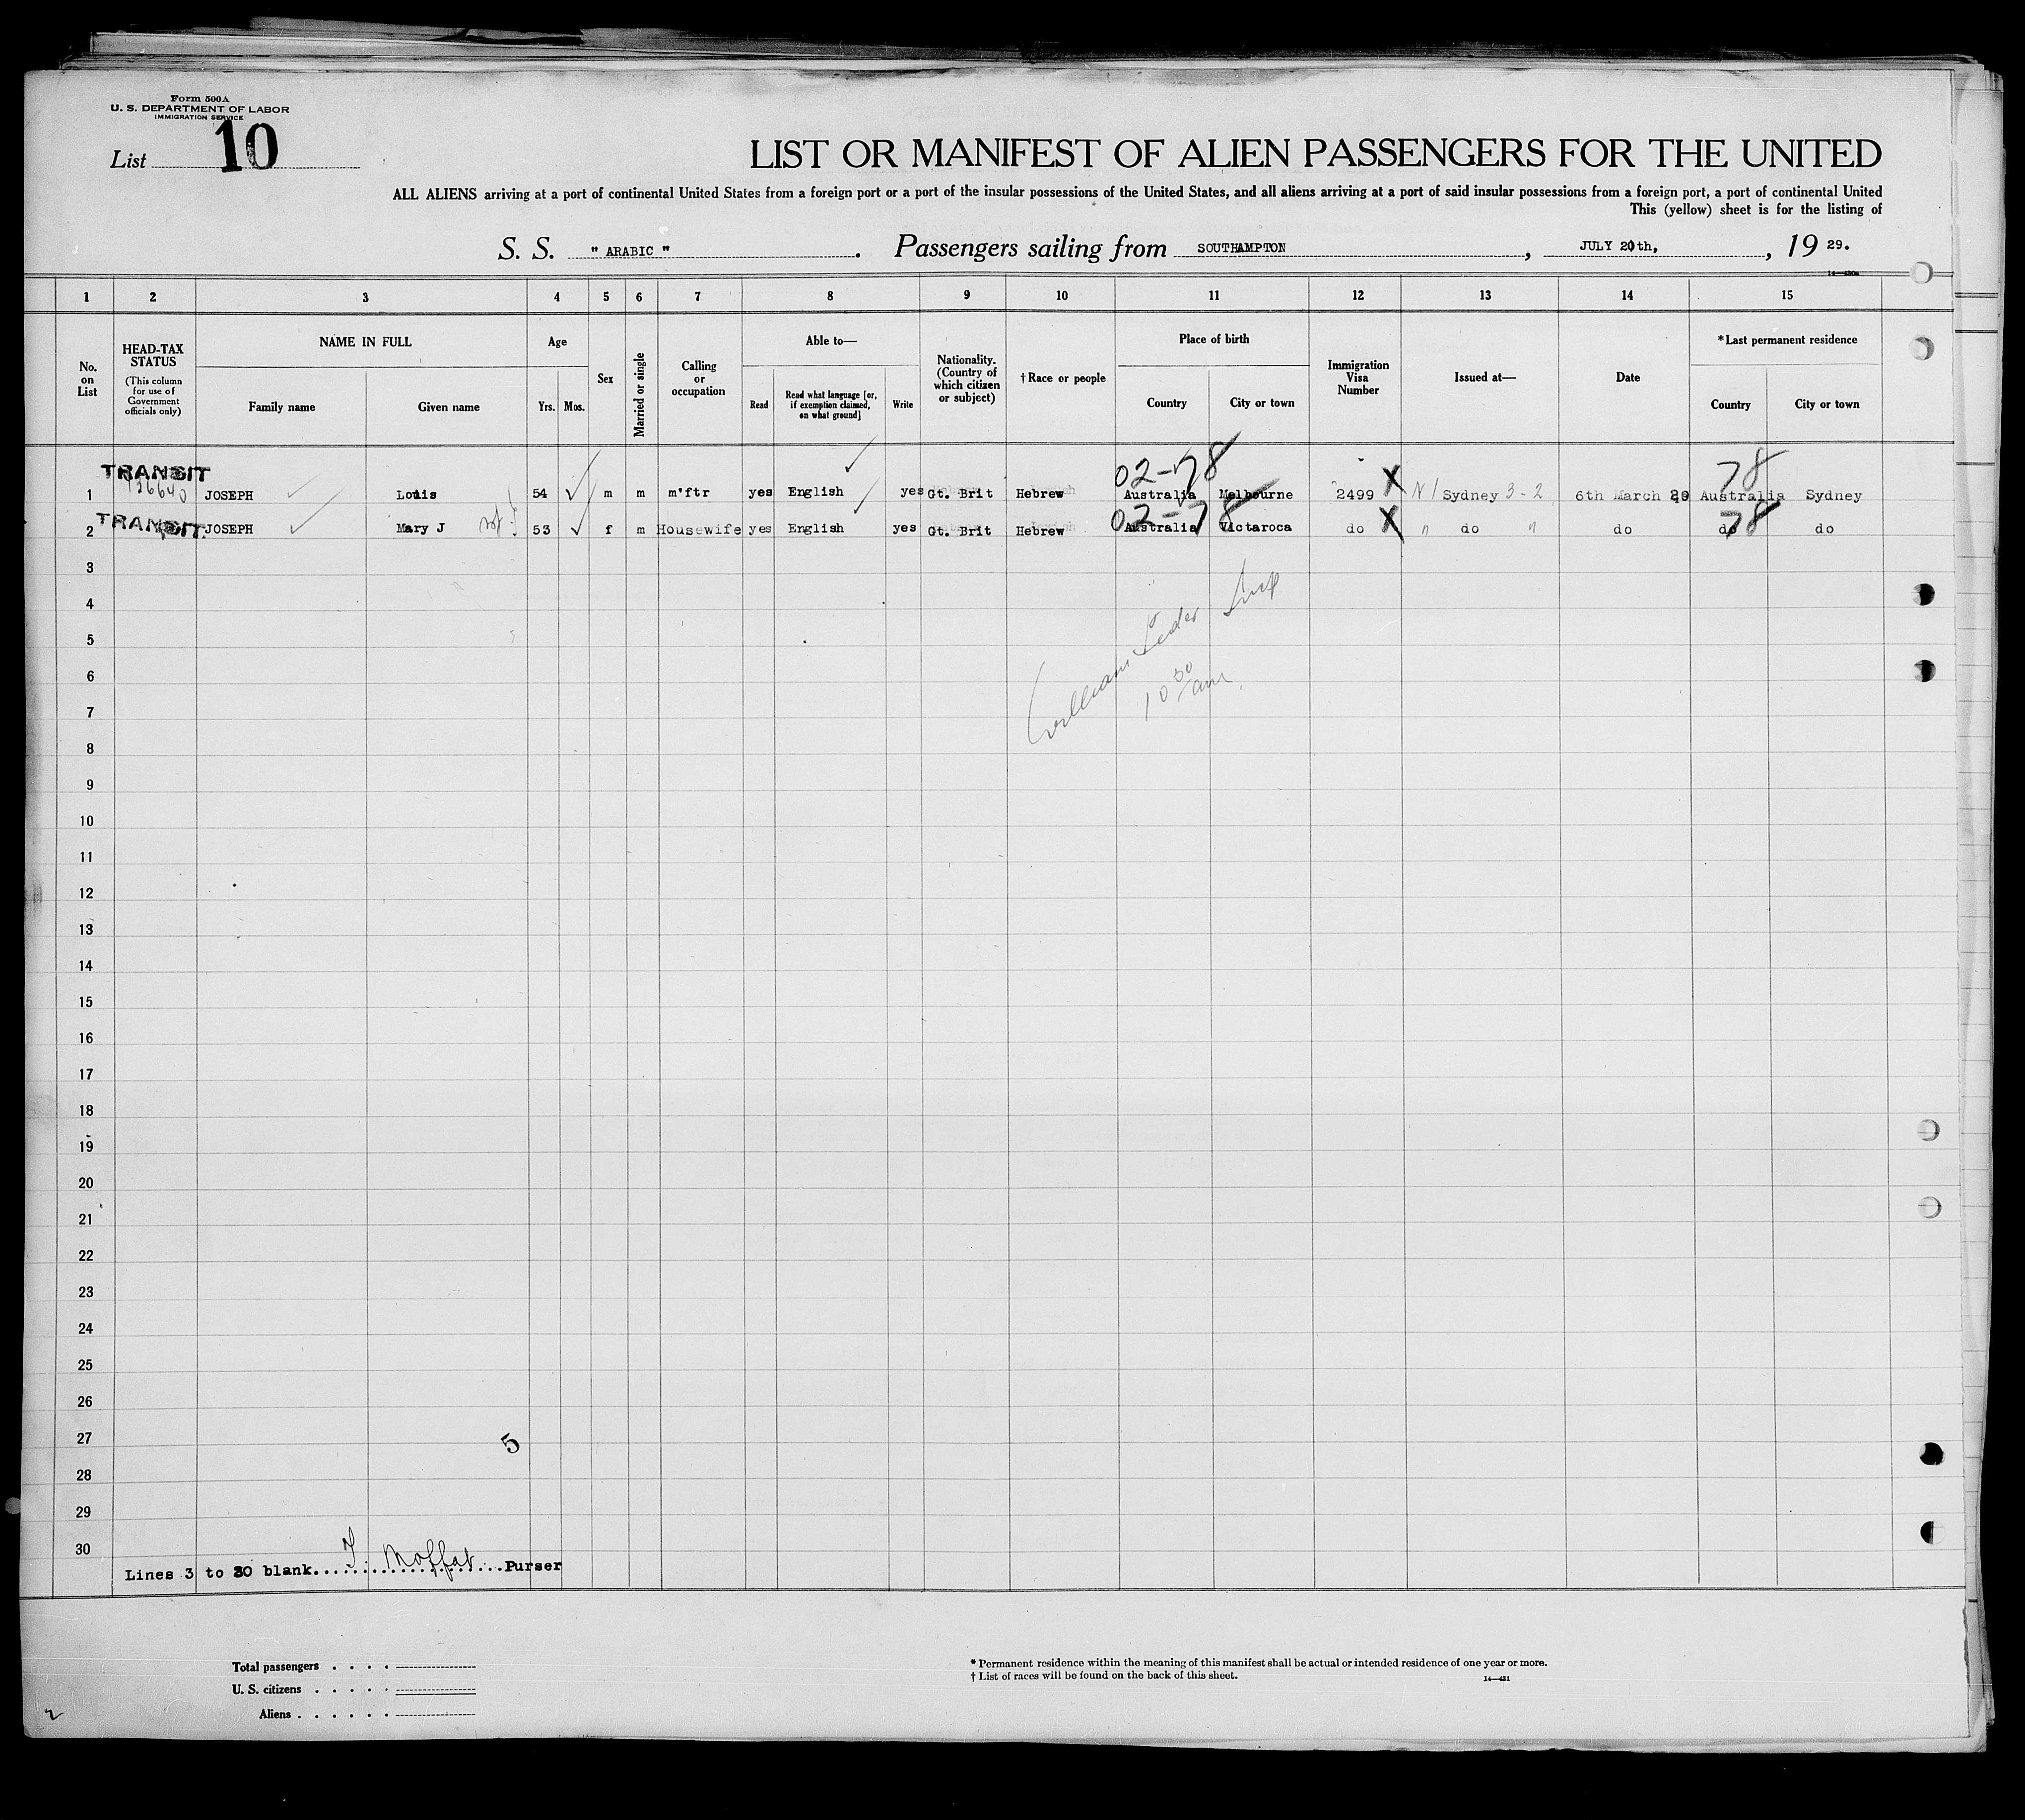 Form 500A
U. S. DEPARTMENT OF LABOR
IMMIGRATION SERVICE
List 10
LIST OR MANIFEST OF ALIEN PASSENGERS FOR THE UNITED
ALL ALIENS arriving at a port of continental United States from a foreign port or a port of the insular possessions of the United States, and all aliens arriving at a port of said insular possessions from a foreign port, a port of continental United
This (yellow) sheet is for the listing of
S. S. " ARABIC ". Passengers sailing from SOUTHAMPTON, JULY 20th, , 19 29.
1 2 3 4 5 6 7 8 9 10 11 12 13 14 15
No. on List
HEAD-TAX STATUS
(This column for use of Government officials only)
NAME IN FULL
Family name Given name
Age
Yrs. Mos.
Sex
Married or single
Calling or occupation
Able to—
Read
Read what language [or, if exemption claimed, on what ground]
Write
Nationality. (Country of which citizen or subject)
† Race or people
Place of birth
Country City or town
Immigration Visa Number
Issued at—
Date
*Last permanent residence
Country City or town
TRANSIT 02-78 78
1 JOSEPH Louis 54 m m m'ftr yes English yes Gt. Brit Hebrew Australia Melbourne 2499 X Sydney 3-2 6th March 29 Australia Sydney
TRANSIT 02-78 78
2 JOSEPH Mary J 53 f m Housewife yes English yes Gt. Brit Hebrew Australia Victaroca do X " do " do do do
3
4
5
6
William
10 30 am
7
8
9
10
11
12
13
14
15
16
17
18
19
20
21
22
23
24
25
26
27
5
28
29
30
Lines 3 to 30 blank....T. Moffat....Purser
Total passengers . . . .
U. S. citizens . . . . .
Aliens . . . . . .
* Permanent residence within the meaning of this manifest shall be actual or intended residence of one year or more.
† List of races will be found on the back of this sheet.
14—431
2